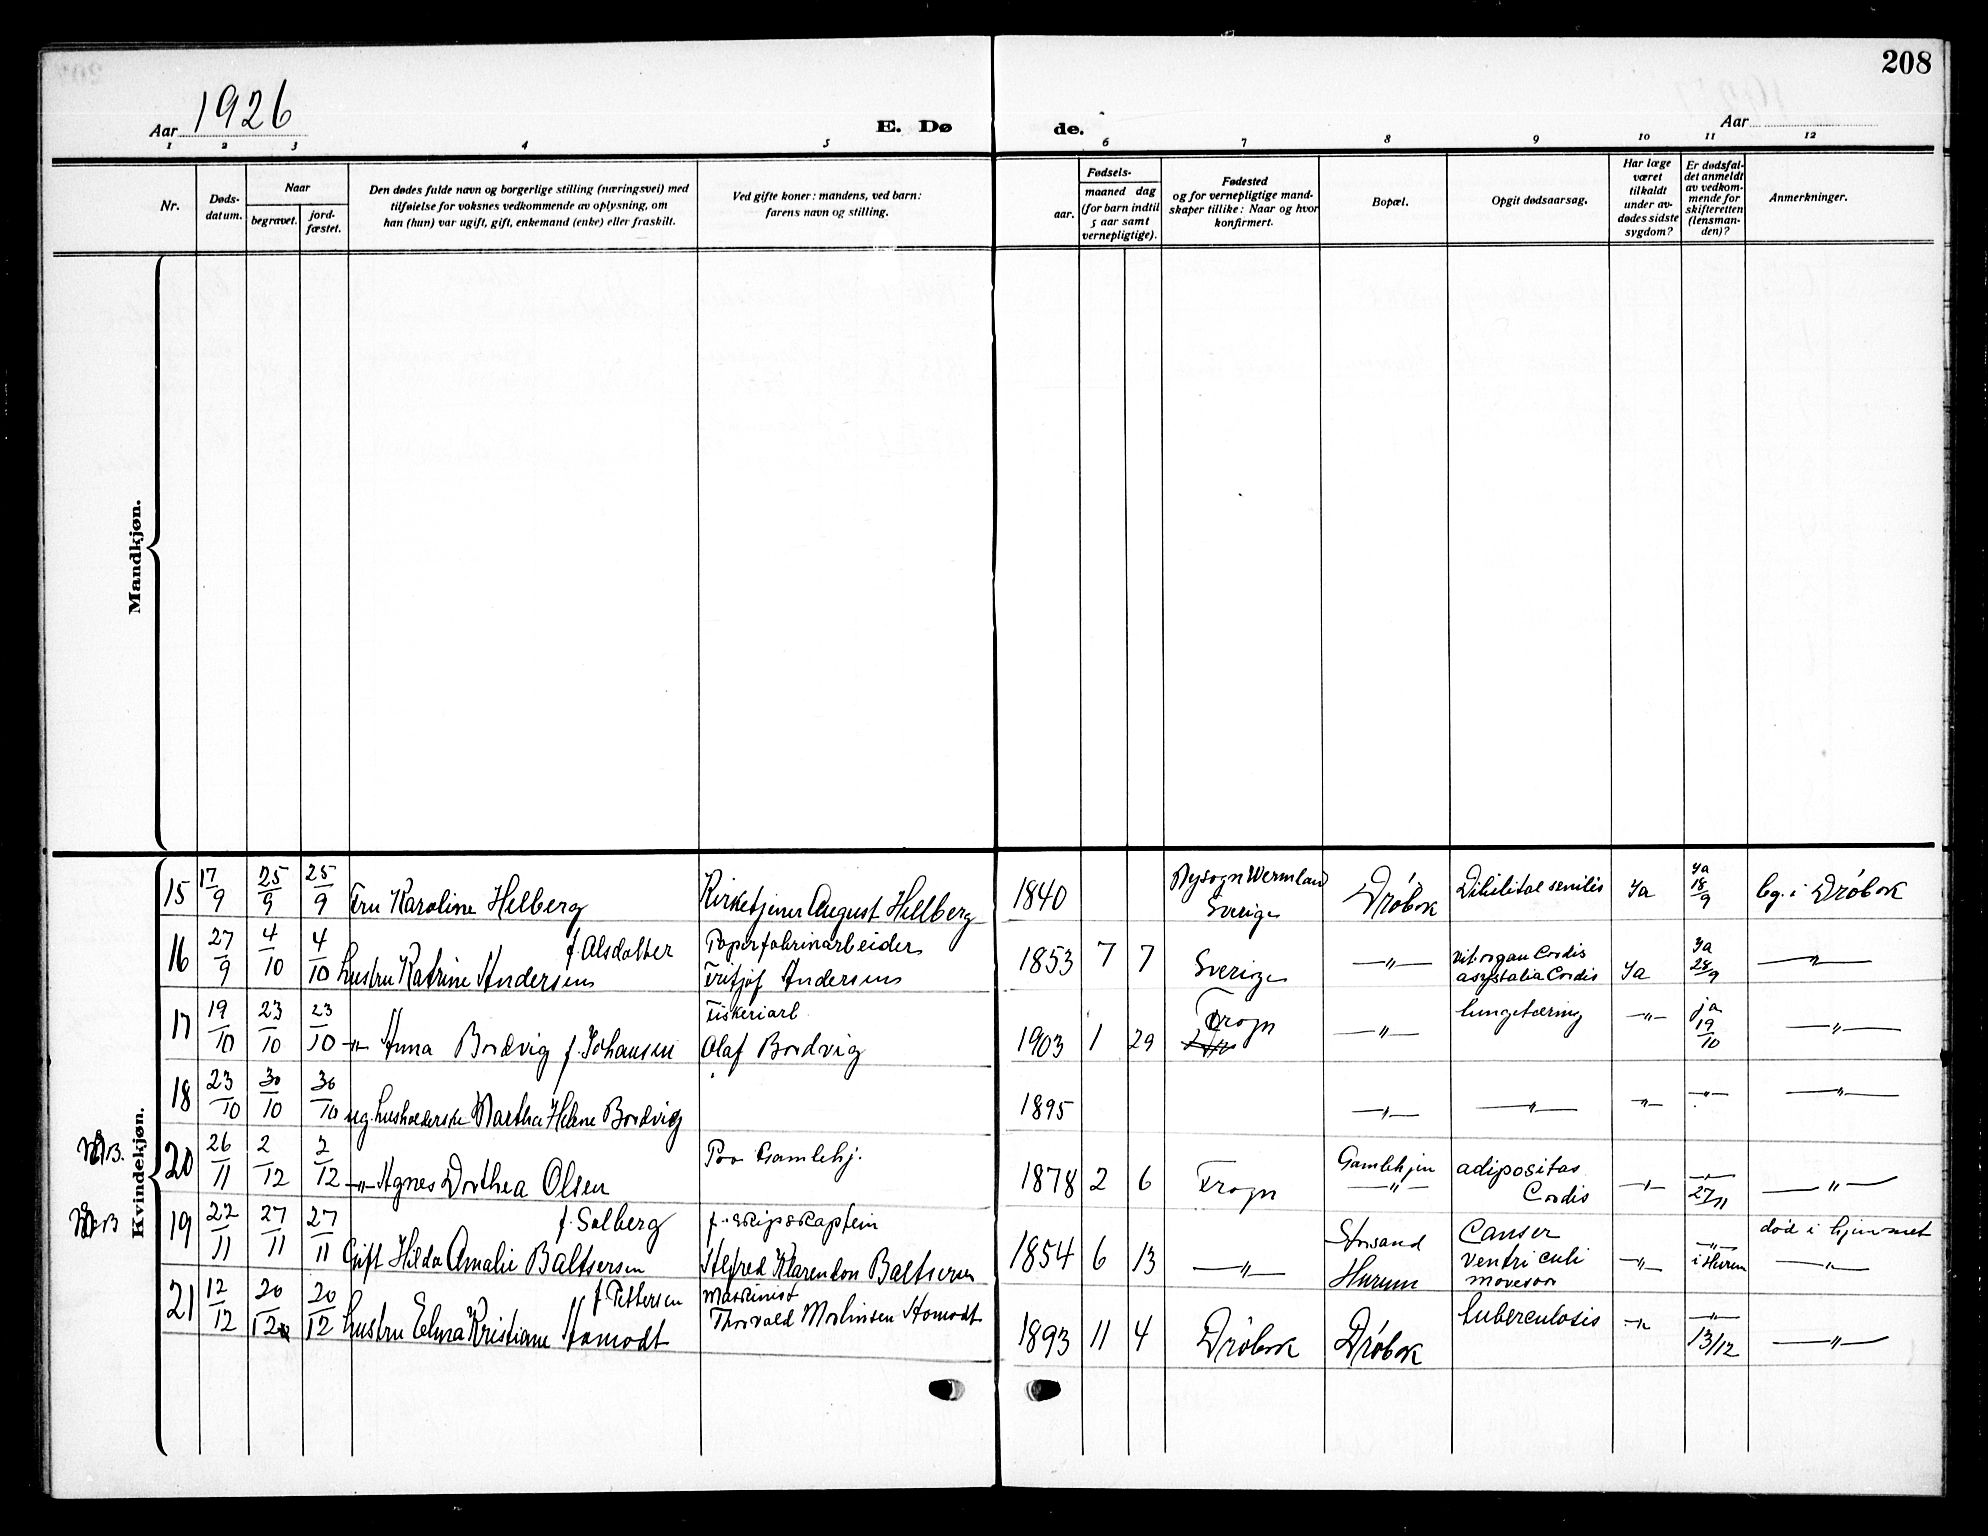 208
Aar 1926
E. Dø
de.
Aar
1 2 3 4 5 6 7 8 9 10 11 12
Nr.
Døds-
datum.
Naar
begravet.
jord-
fæstet.
Den dødes fulde navn og borgerlige stilling (næringsvei) med
tilføielse for voksnes vedkommende av oplysning, om
han (hun) var ugift, gift, enkemand (enke) eller fraskilt.
Ved gifte koner: mandens, ved barn:
farens navn og stilling.
Fødsels-
aar.
maaned dag
(for barn indtil
5 aar samt
vernepligtige).
Fødested
og for vernepligtige mand-
skaper tillike: Naar og hvor
konfirmert.
Bopæl.
Opgit dødsaarsag.
Har læge
været
tilkaldt
under av-
dødes sidste
sygdom?
Er dødsfal-
det anmeldt
av vedkom-
mende for
skifteretten
(lensman-
den)?
Anmerkninger.
Mandkjøn.
Kvindekjøn.
15 17/9 25/9 25/9 Fru Karoline Helberg Kirketjener August Hellberg 1840 Nysogn Wermland
Sverige Drøbak senilis Ja Ja
18/9 bg. i Drøbak
16 27/9 4/10 4/10 f. Olsdatter
hustru Katrine Andersens Papirfabrikarbeider
Fritjof Andersens 1853 7 7 Sverige —"— vit. organ Cordis
asystolia Cordis Ja Ja
28/9 —"—
17 19/10 23/10 23/10 —"— Anna Bordvig f. Johansen Fiskeriarb.
Olaf Bordvig 1903 1 29 Frogn —"— lungetæring —"— ja
19/10 —"—
18 23/10 30/10 30/10 ug. husholderske Martha Helene Bordvig 1895 —"— —"— —"— —"— —"—
NB. 20 26/11 2/12 2/12 —"— Agnes Dorthea Olsen Paa Gamlehj. 1878 2 6 Frogn Gamlehjem
—"— adipositas
Cordis —"— —"—
27/11 —"—
NB 19 22/11 27/11 27/11 f. Solberg
Gift Hilda Amalie Baltsersen f. skipskaptein
Alfred Klarendon Baltsersen 1854 6 13 —"— Storsand
Hurum Canser
ventriculi —"— —"—
i Hurum død i hjemmet
—"—
21 12/12 20/12 20/12 f. Pettersen
hustru Elma Kristiane Homodt Maskinist
Thorvald Homodt 1893 11 4 Drøbak Drøbak tuberculosis —"— —"—
13/12 —"—